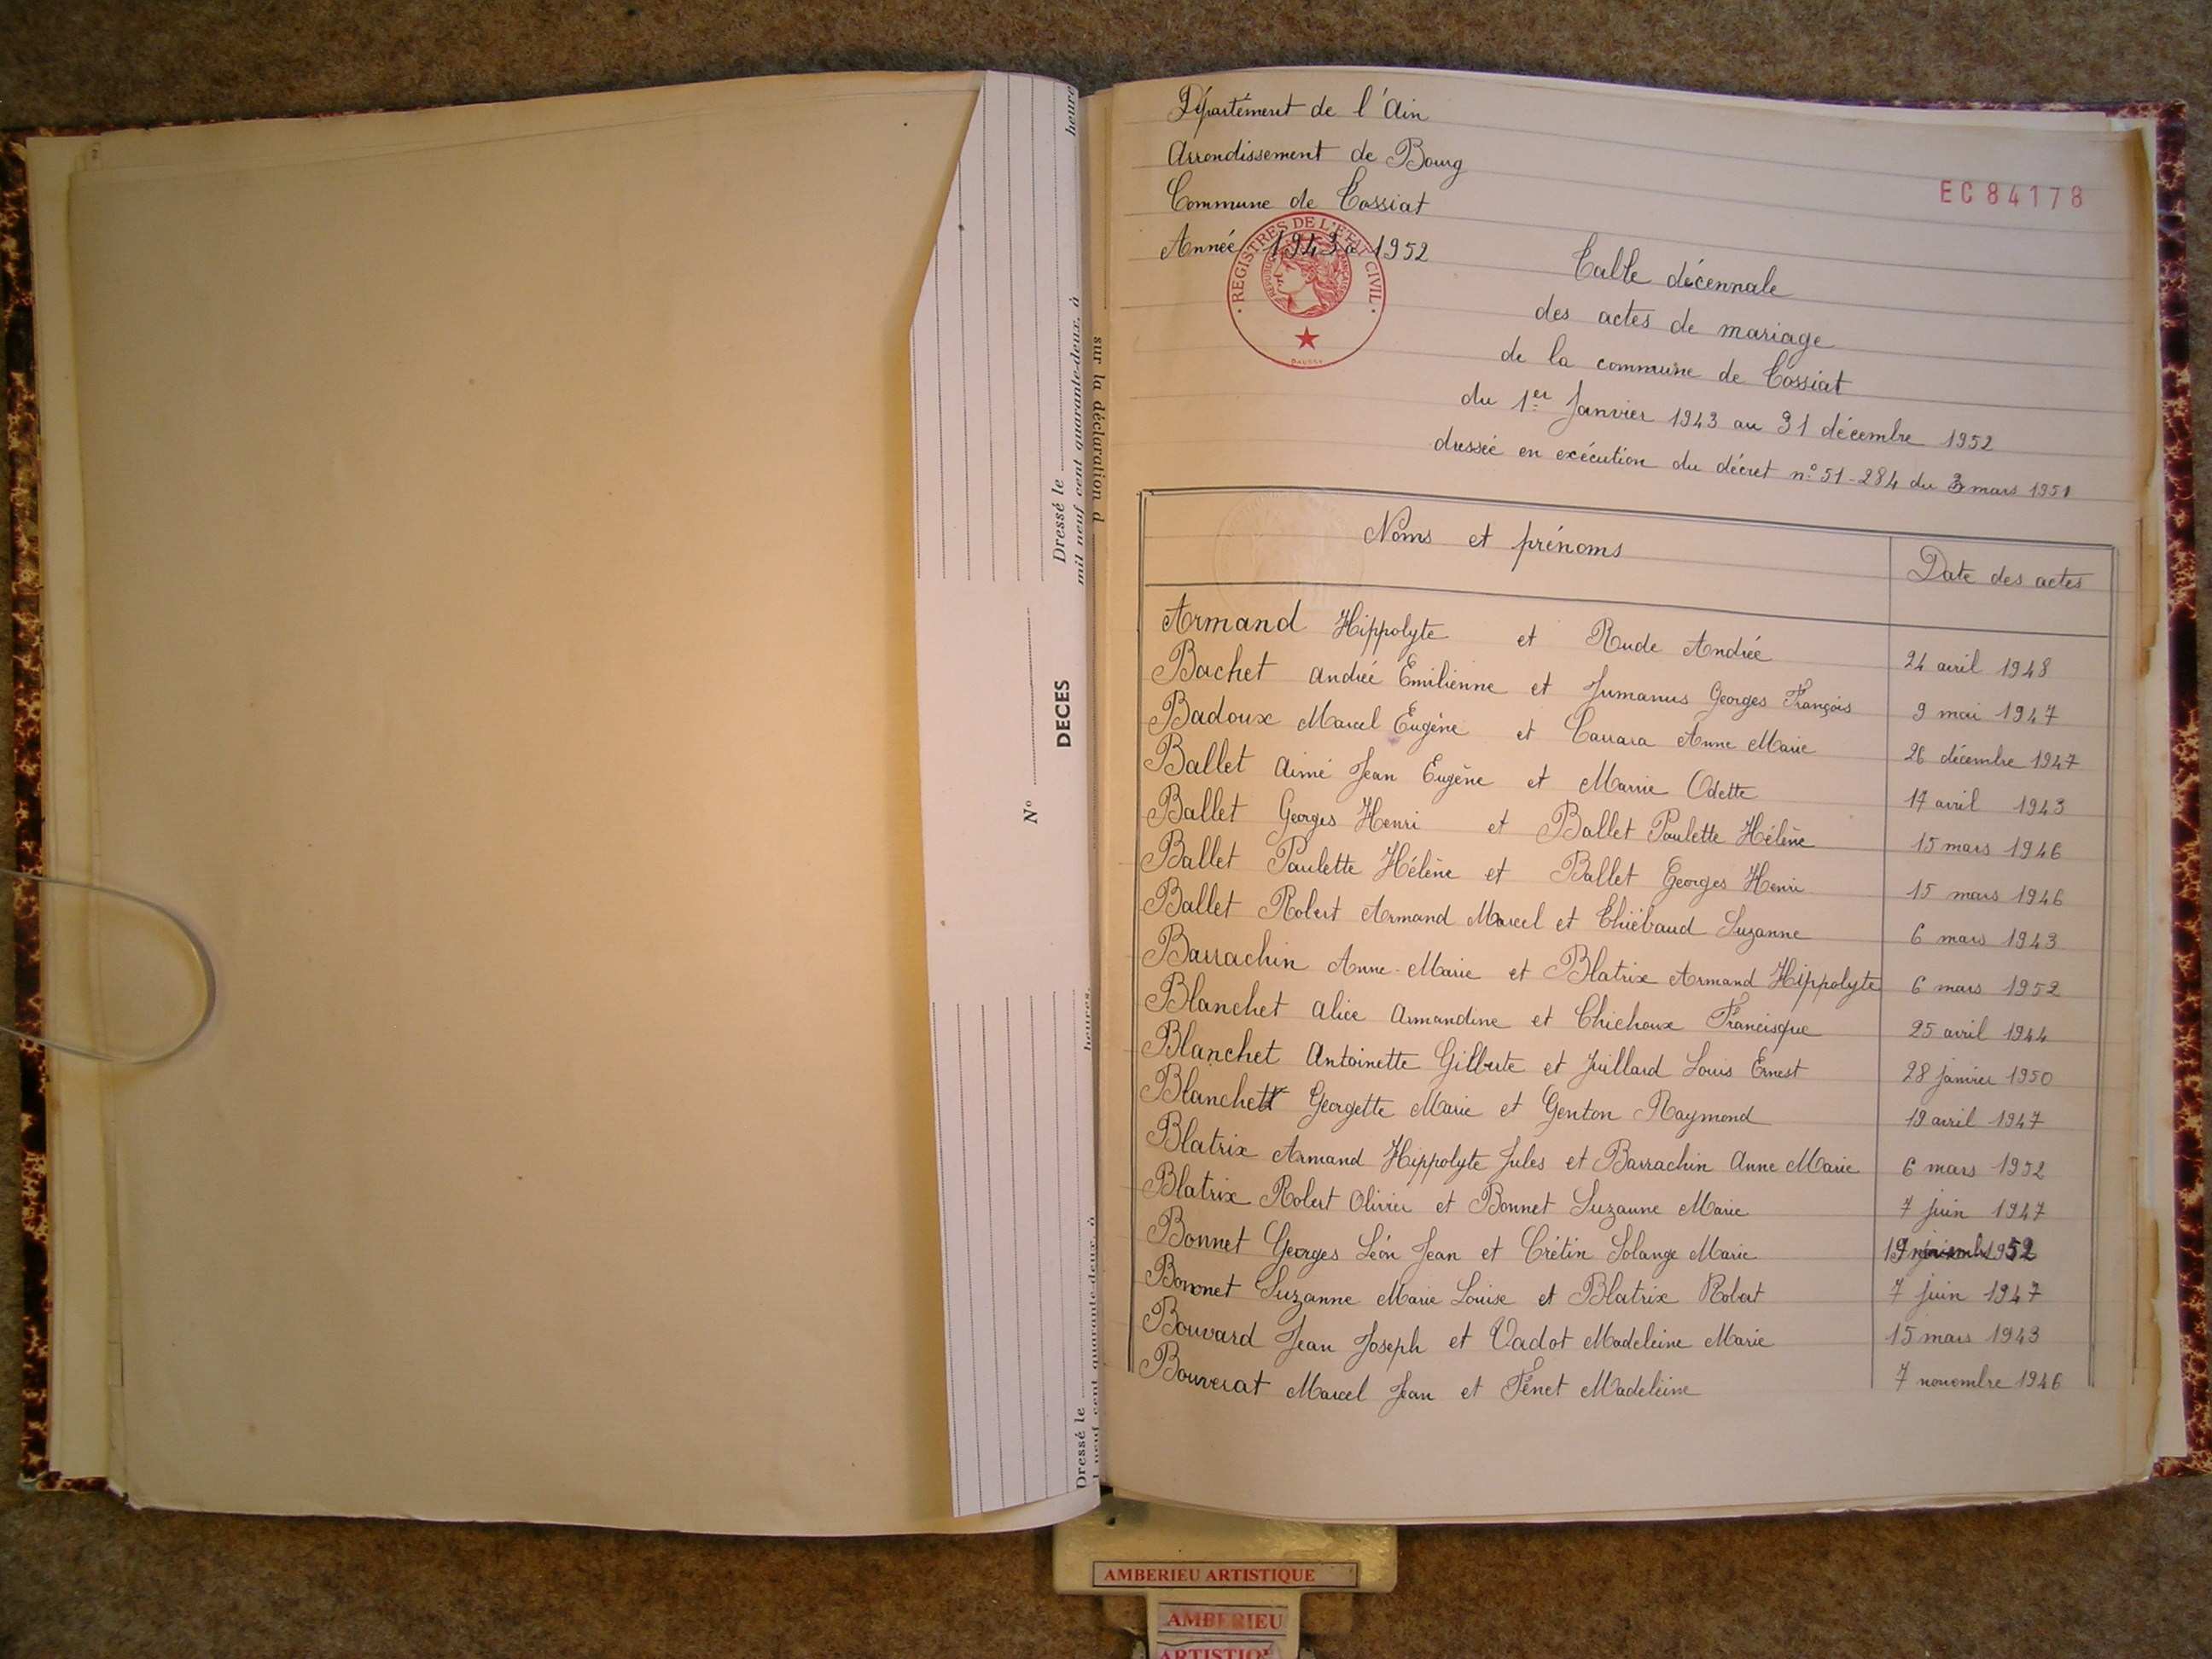 heure
Dressé le
mil neuf cent quarante-deux, à
sur la déclaration d
N°
DECES
heures,
Dressé le
l neuf cent quarante-deux, à
Département de l'Ain
Arrondissement de Bourg
Commune de Tossiat
Année 1943 à 1952
EC84178
REGISTRES DE L'ETAT CIVIL
Table décennale
des actes de mariage
de la commune de Tossiat
du 1er Janvier 1943 au 31 décembre 1952
dressée en exécution du décret n° 51-284 du 3 mars 1951
Noms et prénoms Date des actes
Armand Hippolyte et Rude Andrée 24 avril 1948
Bachet Andrée Emilienne et Jumanus Georges François 9 mai 1947
Badoux Marcel Eugène et Carrara Anne Marie 26 décembre 1947
Ballet Aimé Jean Eugène et Odette 17 avril 1943
Ballet Georges Henri et Ballet Paulette Hélène 15 mars 1946
Ballet Paulette Hélène et Ballet Georges Henri 15 mars 1946
Ballet Robert Armand Marcel et Thiébaud Suzanne 6 mars 1943
Barrachin Anne-Marie et Blatrix Armand Hippolyte 6 mars 1952
Blanchet Alice Armandine et Chichoux Francisque 25 avril 1944
Blanchet Antoinette Gilberte et Juillard Louis Ernest 28 janvier 1950
Blanchet Georgette Marie et Genton Raymond 19 avril 1947
Blatrix Armand Hippolyte Jules et Barrachin Anne Marie 6 mars 1952
Blatrix Robert Olivier et Bonnet Suzanne Marie 7 juin 1947
Bonnet Georges Léon Jean et Crétin Solange Marie 19 1952
Bonnet Suzanne Marie Louise et Blatrix Robert 7 juin 1947
Bouvard Jean Joseph et Vadot Madeleine Marie 15 mars 1943
Bouverat Marcel Jean et Fénet Madeleine 7 novembre 1946
AMBERIEU ARTISTIQUE
AMBERIEU
ARTISTIQ